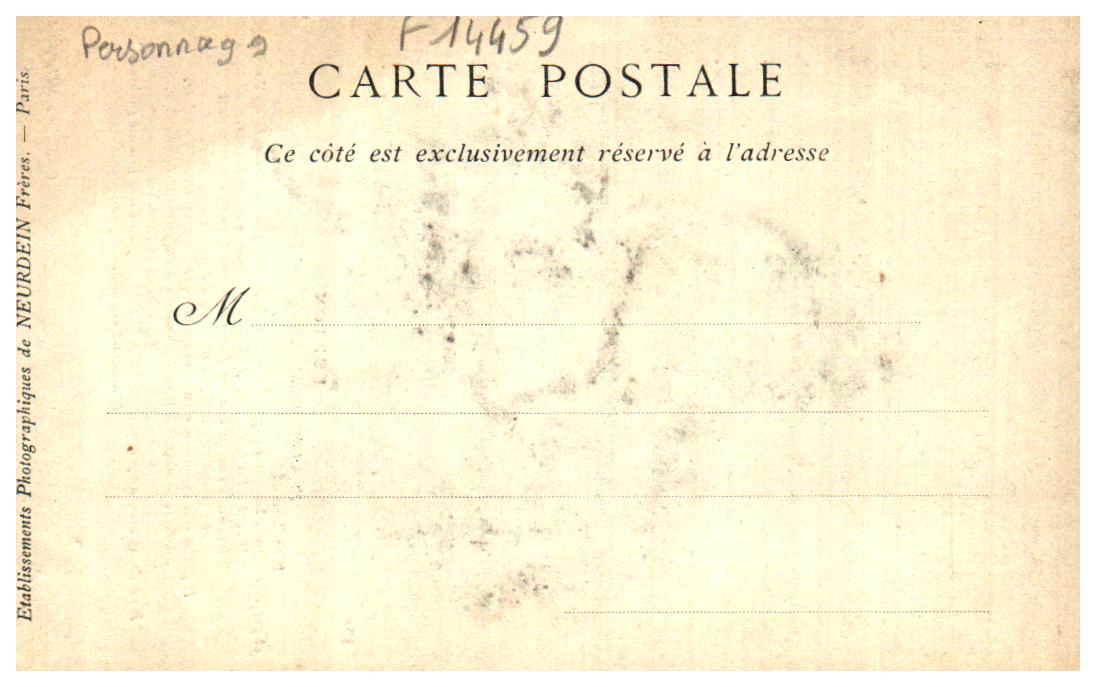 F 14459
CARTE POSTALE
Ce côté est exclusivement réservé à l'adresse
M
Etablissements Photographiques de NEURDEIN Frères. — Paris.